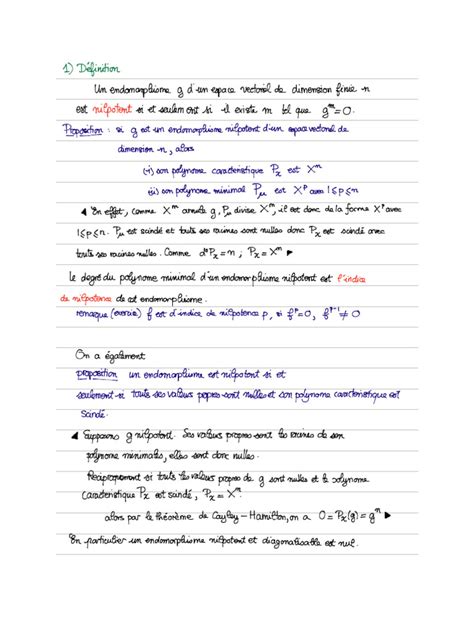 1) Définition
Un endomorphisme g d'un espace vectoriel de dimension finie n
est nilpotent si et seulement si il existe m tel que g^m = 0.
Proposition : si g est un endomorphisme nilpotent d'un espace vectoriel de
dimension n, alors
(i) son polynome caractéristique P_x est X^n
(ii) son polynome minimal P_μ est X^p avec 1≤p≤n
◀ En effet, comme X^m annule g, P_μ divise X^m, il est donc de la forme X^p avec
1≤p≤n. P_μ est scindé et toute ses racines sont nulles donc P_x est scindé avec
toute ses racines nulles. Comme d°P_x = n ; P_x = X^n ▶
le degré du polynome minimal d'un endomorphisme nilpotent est l'indice
de nilpotence de cet endomorphisme.
remarque (exercice) f est d'indice de nilpotence p, si f^p = 0, f^{p-1} ≠ 0
On a également
proposition un endomorphisme est nilpotent si et
seulement si toute ses valeurs propres sont nulles et son polynome caractéristique est
scindé.
◀ Supposons g nilpotent. Ses valeurs propres sont les racines de son
polynome minimales, elles sont donc nulles.
Réciproquement si toute les valeurs propres de g sont nulles et le polynome
caractéristique P_x est scindé, P_x = X^n
alors par le théorème de Cayley-Hamilton, on a 0 = P_x(g) = g^n ▶
En particulier un endomorphisme nilpotent et diagonalisable est nul.